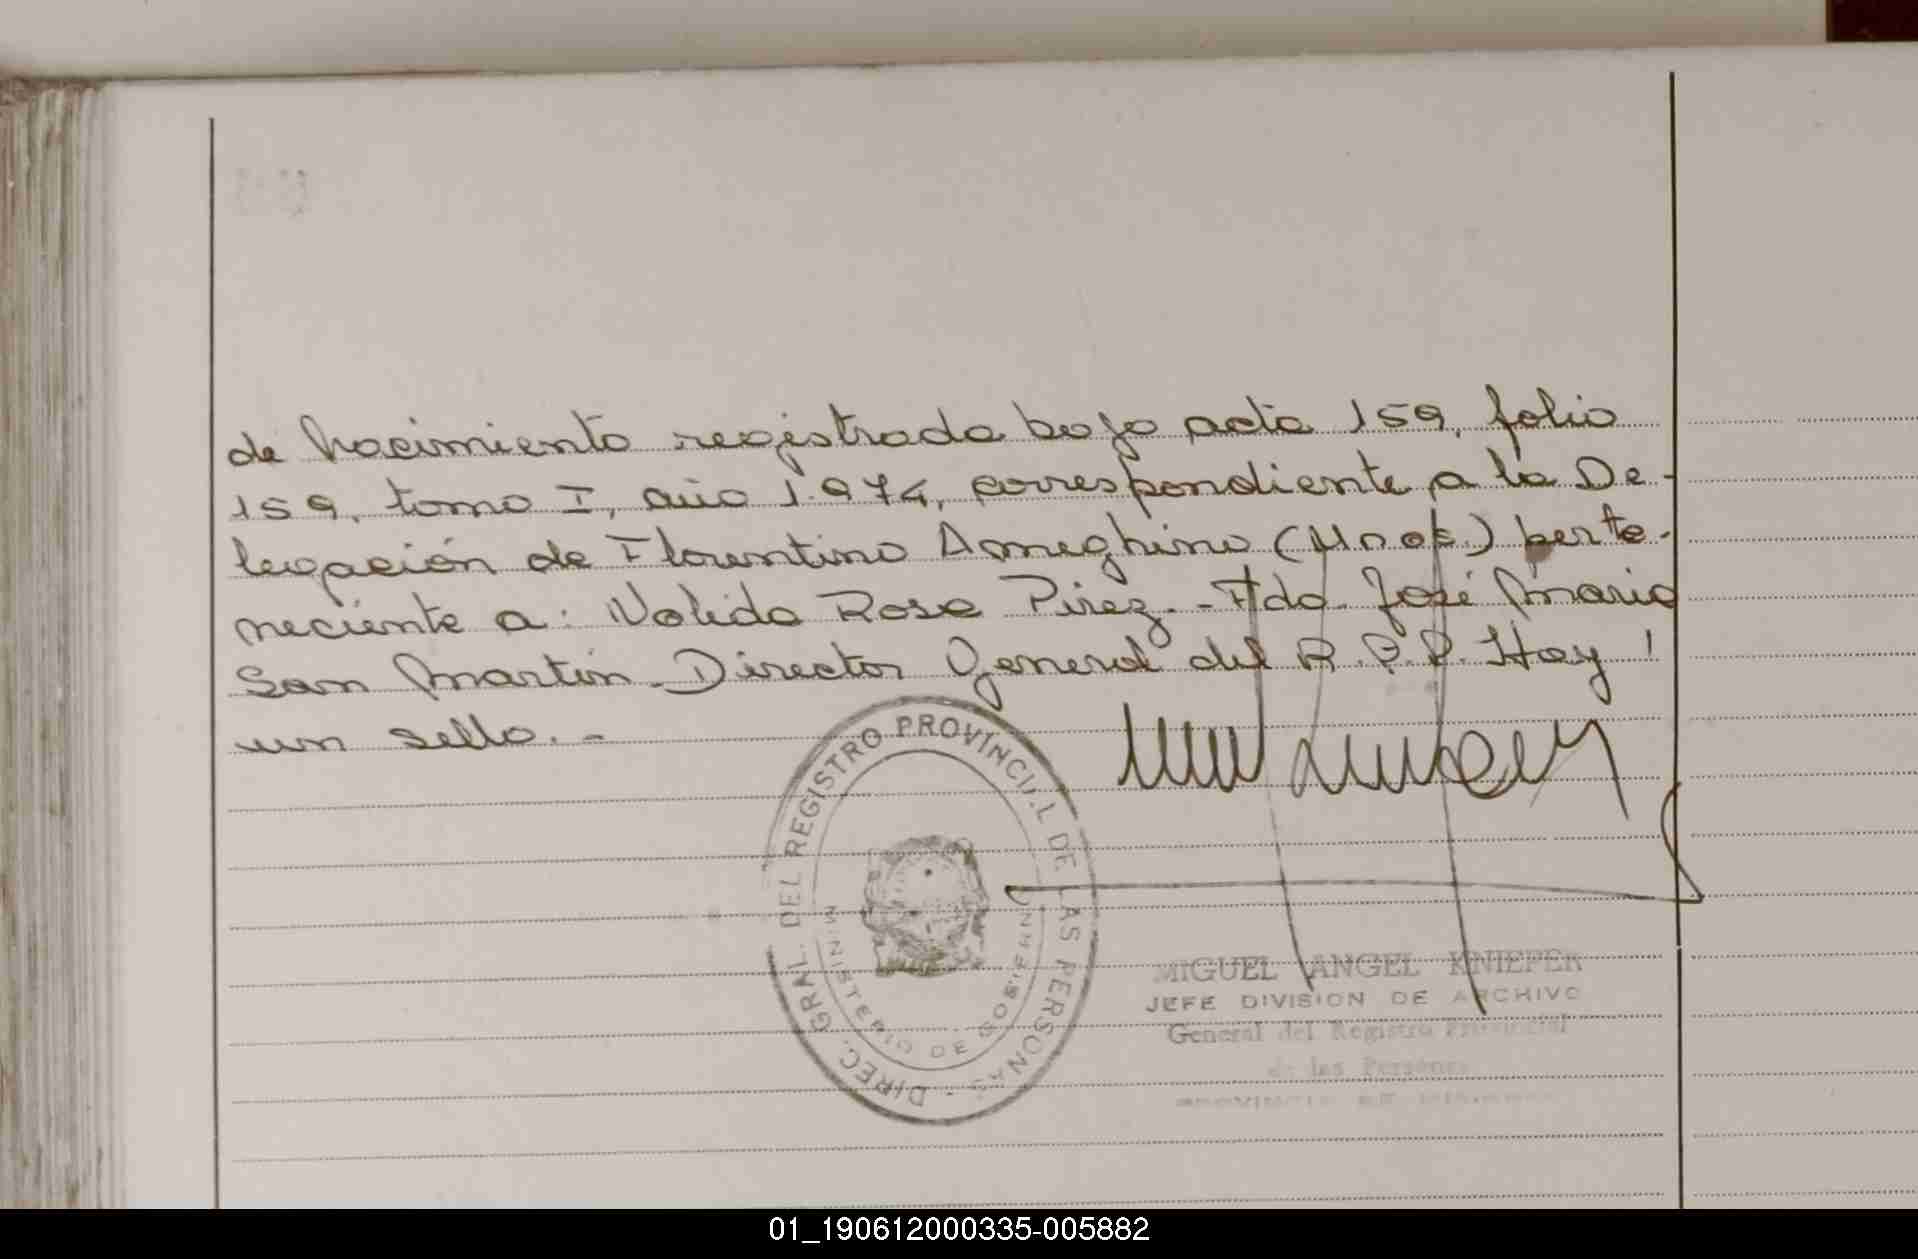 de Nacimiento registrada bajo acta 159, folio
159, tomo I, año 1.974, correspondiente a la De-
legación de Florentino Ameghino (Mnes.) perte-
neciente a: Nolida Rosa Pirez.- Fdo. José Maria
San Martin - Director General del R.P.P. Hay
un sello.-
DIREC. GRAL. DEL REGISTRO PROVINCIAL DE LAS PERSONAS
MINISTERIO DE GOBIERNO
MIGUEL ANGEL KNIEPER
JEFE DIVISION DE ARCHIVO
General del Registro Provincial
de las Personas
01_190612000335-005882